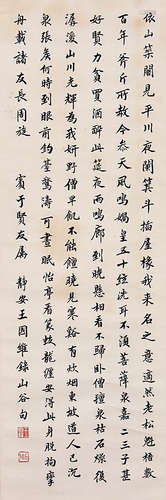 依山築閣見平川夜闌箕斗插屋椽我來名之意適然老松魁梧數
百年斧斤所赦今參天風鳴媧皇五十弦洗耳不須菩薩泉嘉二三子甚
好賢力貧買酒醉此筵夜雨鳴廊到曉懸相看不歸臥僧氈泉枯石燥復
潺湲山川光輝為我妍野僧早飢不能饘曉見寒谿有炊烟東坡道人已沉
泉張侯何時到眼前釣臺驚濤可晝眠怡亭看篆蛟龍纏安得此身脫拘攣
舟載諸友長周旋
賓于賢友屬 靜安王國維錄山谷句